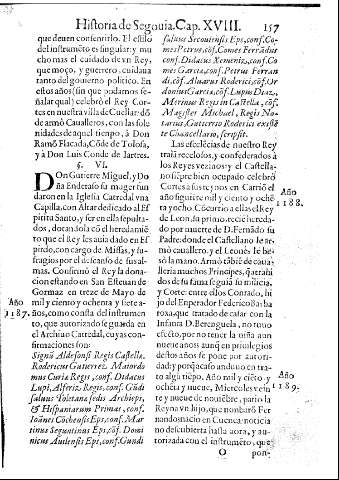 Historia de Segouia. Cap. XVIII. 157
que deuen consentirlo. El estilo
del instrumẽto es singular: y mu
cho mas el cuidado de vn Rey,
que moço, y guerrero, cuidaua
tanto del gouierno politico. En
estos años (sin que podamos se-
ñalar qual) celebrò el Rey Cor-
tes en nuestra villa de Cuellar: dõ
de armò Caualleros, con las sole
nidades de aquel tiempo, à Don
Ramõ Flacada, Cõde de Tolosa,
y à Don Luis Conde de Jartres.
§. VI.
DOn Gutierre Miguel, y Do
ña Enderaso su muger fun
daron en la Iglesia Catredal vna
Capilla, con Altar dedicado al Es
piritu Santo, y ser en ella sepulta-
dos, dotandola cõ el heredamiẽ
to que el Rey les auia dado en Es
pirdo, con cargo de Missas, y su-
fragios por el descanso de sus al-
mas. Confirmò el Rey la dona-
cion estando en San Esteuan de
Gormaz en treze de Mayo de
Año
1187.
mil y ciento y ochenta y siete a-
ños, como consta del instrumen
to, que autorizado se guarda en
el Archiuo Catredal, cuyas con-
firmaciones son:
Signũ Aldefonsi Regis Castellæ.
Rodericus Gutierrez, Maiordo
mus Curiæ Regis, conf. Didacus
Lupi, Alferiz Regis, conf. Gũdi
saluus Toletanæ sedis Archieps,
& Hispaniarum Primas, conf.
Ioãnes Cõchensis Eps, conf. Mar
tinus Seguntinus Eps, conf. Domi
nicus Aulensis Eps, conf. Gundi
saluus Secouiensis Eps, conf. Co-
mes Petrus, cõf. Comes Ferrãdus
conf. Didacus Xemenez, conf. Go
mes Garcia, conf. Petrus Ferran
di, cõf. Aluarus Roderici, cõf. Or
donius Garcia, cõf. Lupus Diaz,
Merinus Regis in Castella, cõf.
Magister Michael, Regis No-
tarius, Gutierrio Roderici existẽ
te Chancellario, scripsit.
Las escelẽcias de nuestro Rey
traia recelosos, y confederados à
los Reyes vezinos: y el Castella-
no siẽpre bien ocupado celebrò
Cortes à sus reynos en Carriõ el
Año
1188.
año siguiẽte mil y ciento y ochẽ
ta y ocho. Cõcurriò a ellas el Rey
de Leon, su primo, reciẽ hereda-
do por muerte de D. Fernãdo su
Padre: donde el Castellano le ar-
mò cauallero, y el Leonès le be
sò la mano. Armò tãbiẽ de caua-
lleria muchos Principes, q̃ atrahi
dos de su fama seguiã su milicia,
y Corte: entre ellos Conrado, hi
jo del Emperador Federico Barba
roxa, que tratado de casar con la
Infanta D. Berenguela, no tuuo
efecto, por no tener la niña aun
nueue años: aunq̃ en priuilegios
destos años se pone por autori-
dad: y porq̃ acaso anduuo en tra-
to algũ tiẽpo. Año mil y ciẽto y
Año
1189.
ochẽta y nueue, Miercoles vein-
te y nueue de nouiẽbre, pario la
Reyna vn hijo, que nonbarõ Fer
nando: nacio en Cuenca: noticia
no descubierta hasta aora, y au-
torizada con el instrumẽto, que
O pon-